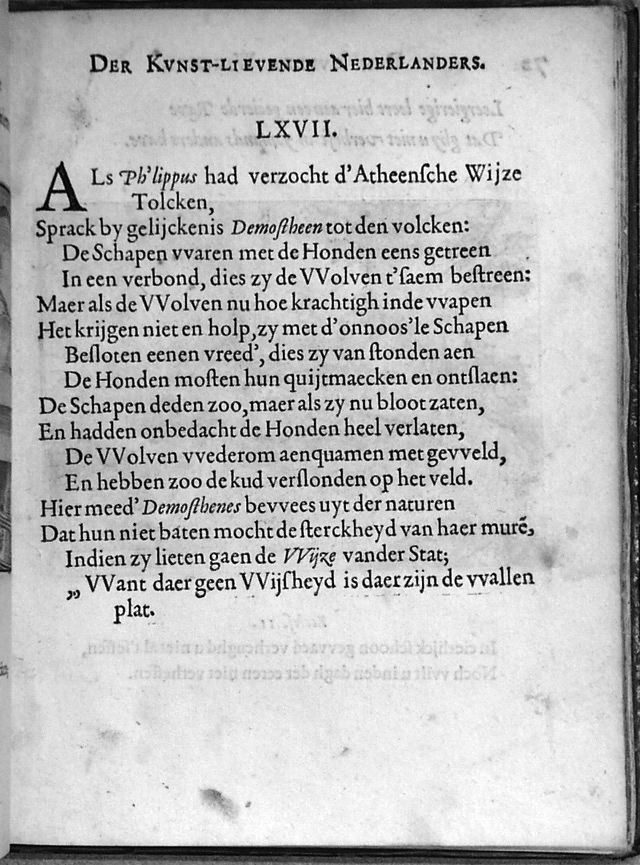 DER KVNST-LIEVENDE NEDERLANDERS.
LXVII.
ALs Ph'lippus had verzocht d'Atheenſche Wijze
Tolcken,
Sprack by gelijckenis Demoſtheen tot den volcken:
De Schapen vvaren met de Honden eens getreen
In een verbond, dies zy de VVolven t'ſaem beſtreen:
Maer als de VVolven nu hoe krachtigh inde vvapen
Het krijgen niet en holp, zy met d'onnoos'le Schapen
Beſloten eenen vreed', dies zy van ſtonden aen
De Honden moſten hun quijtmaecken en ontſlaen:
De Schapen deden zoo, maer als zy nu bloot zaten,
En hadden onbedacht de Honden heel verlaten,
De VVolven vvederom aenquamen met gevveld,
En hebben zoo de kud verſlonden op het veld.
Hier meed' Demoſthenes bevvees uyt der naturen
Dat hun niet baten mocht de ſterckheyd van haer murē,
Indien zy lieten gaen de VVijze vander Stat;
„ VVant daer geen VVijſheyd is daer zijn de vvallen
plat.